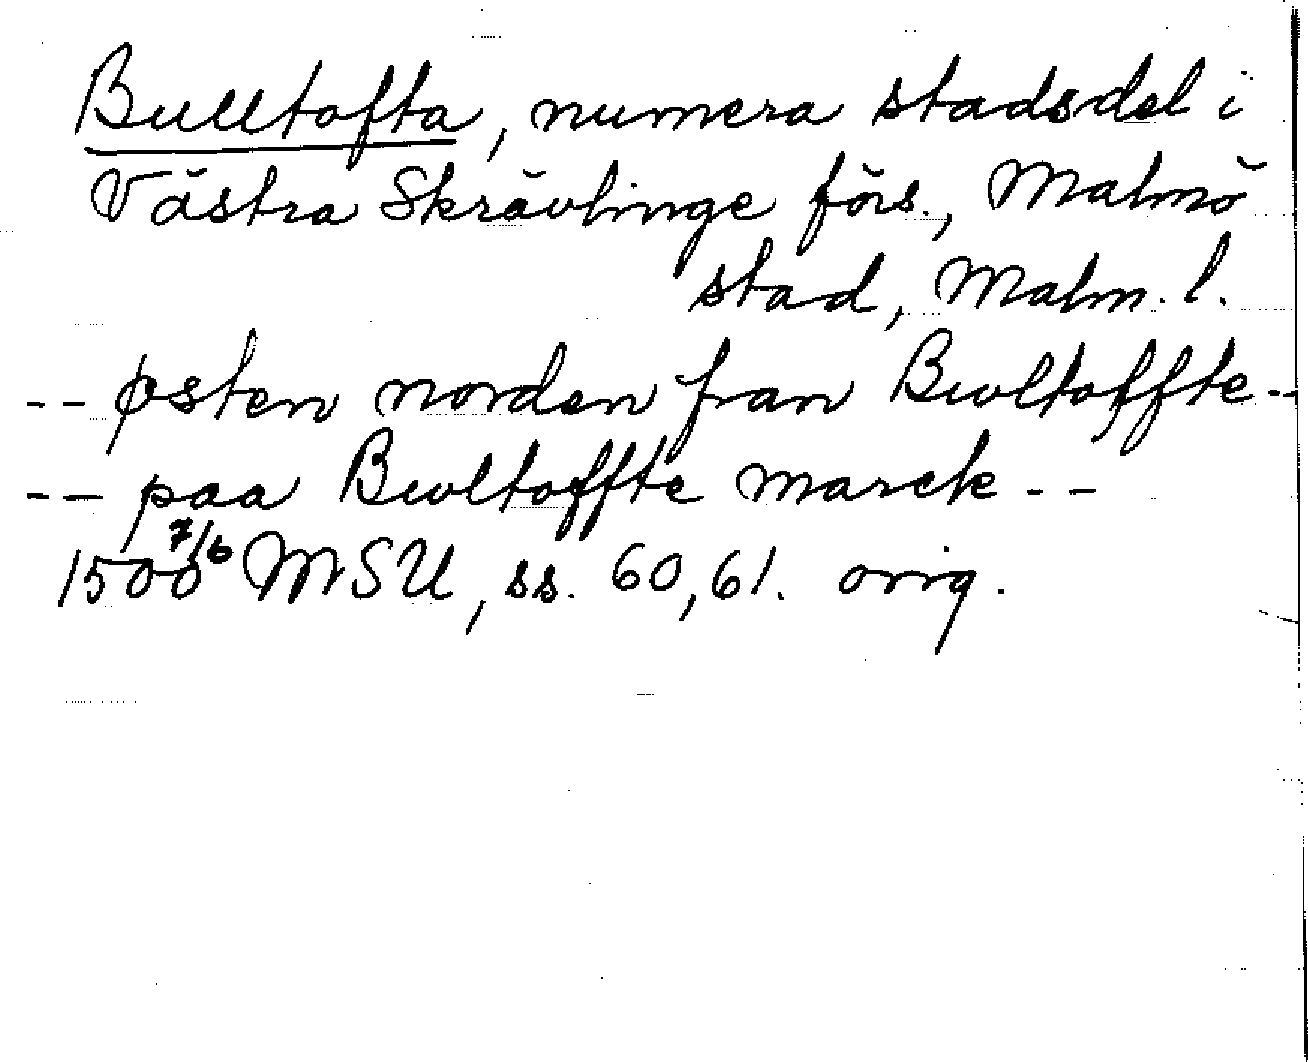 Bulltofta, numera stadsdel i
Västra Skrävlinge förs., Malmö
stad, Malm. l.
-- østen norden fran Bwltoffte --
-- paa Bwltoffte marck --
1500 7/6 MSU, ss. 60, 61. orig.